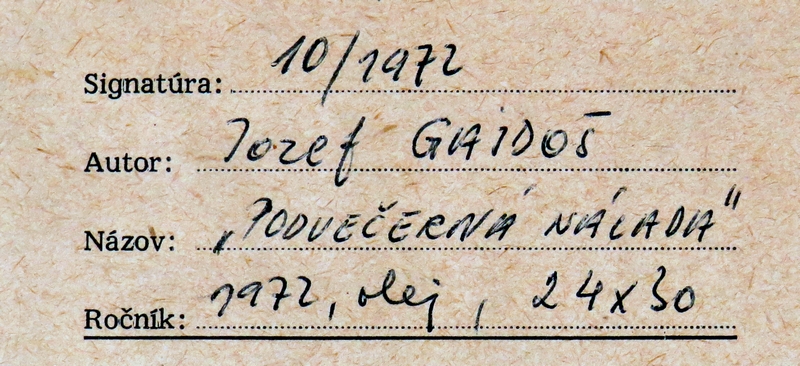 Signatúra: 10/1972
Autor: Jozef GAJDOŠ
Názov: „PODVEČERNÁ NÁLADA"
Ročník: 1972, olej, 24x30